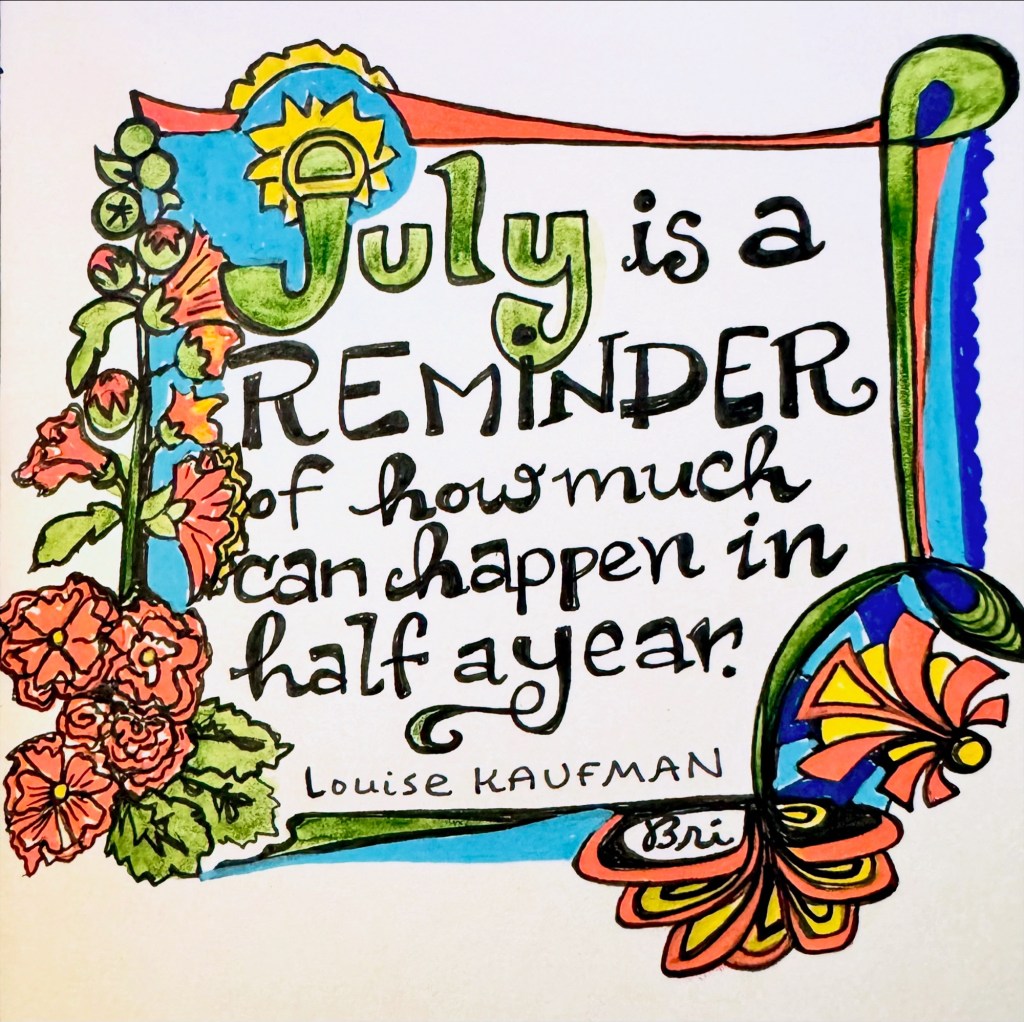 July is a
REMINDER
of how much
can happen in
half a year.
Louise KAUFMAN
Bri